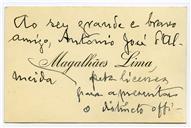 Ao seu grande e bravo
amigo, Antonio José d'Al-
Magalhães Lima
meida, pede licença
para apresentar
o distincto offi-